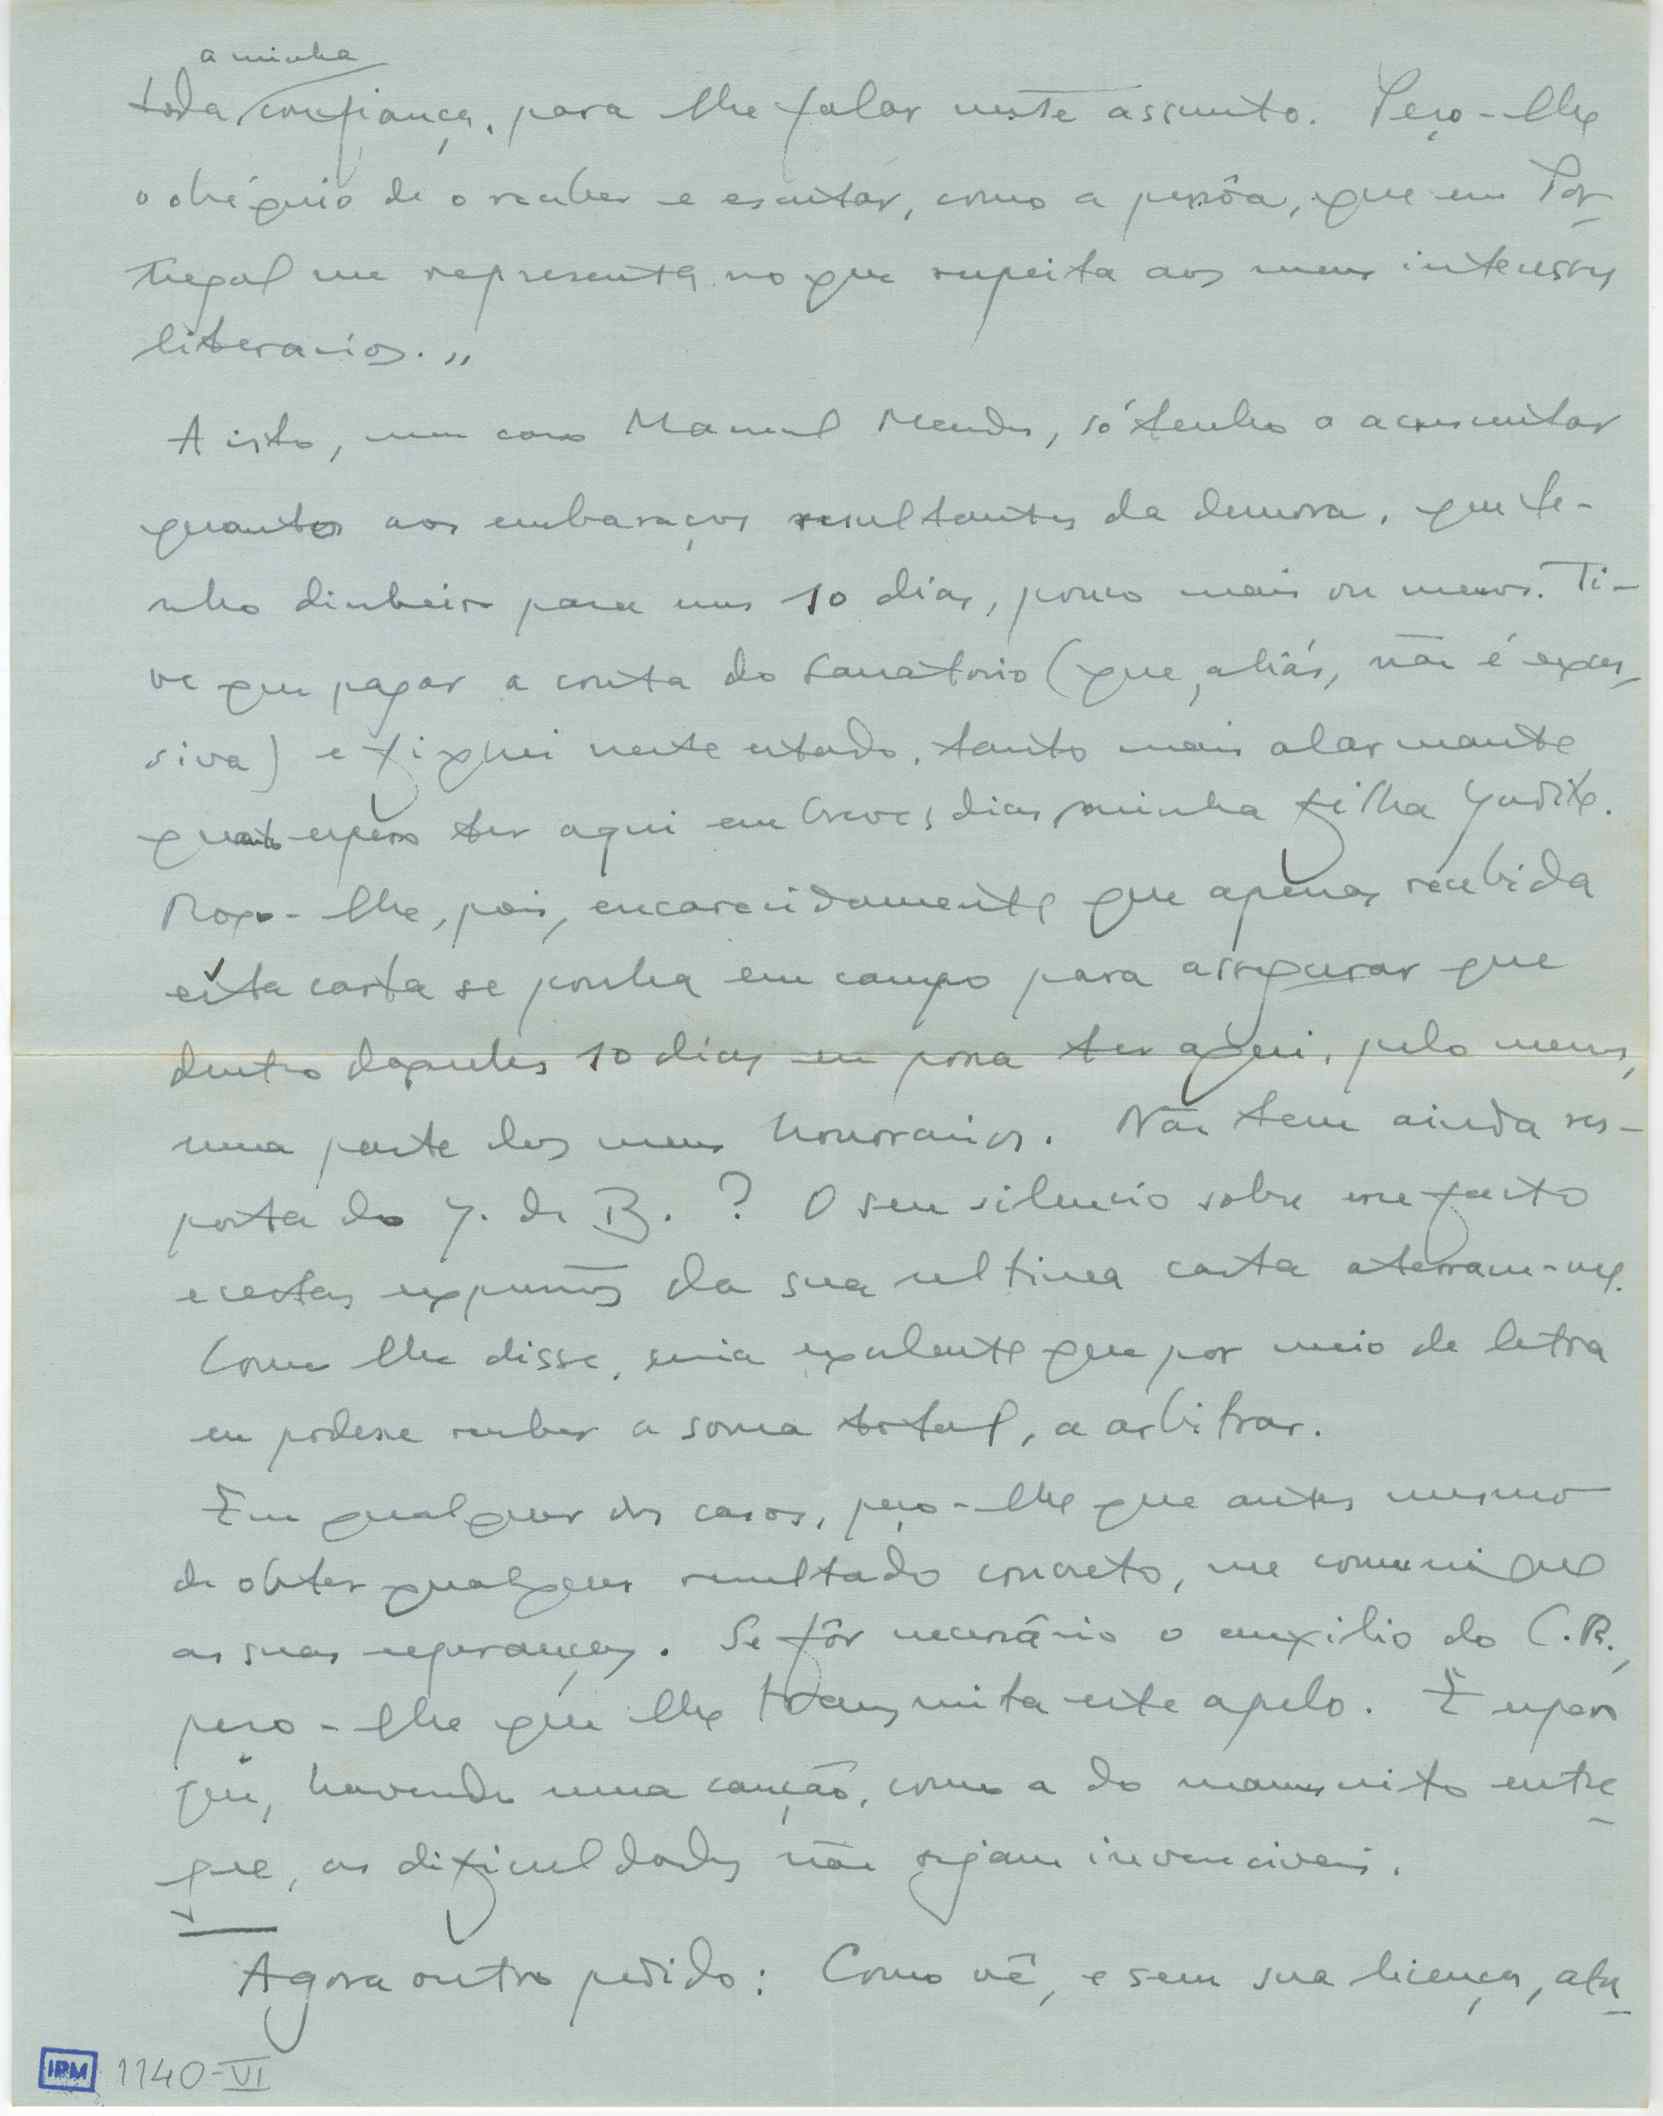 a minha
toda confiança, para lhe falar neste assunto. Peço-lhe
o obséquio de o receber e escutar, como a pessôa, que em Por-
tugal me representa no que respeita aos meus interesses
literarios.,,
A isto, meu caro Manuel Mendes, só tenho a acrescentar
quanto aos embaraços resultantes da demora, que te-
nho dinheiro para uns 10 dias, pouco mais ou menos. Ti-
ve que pagar a conta do Sanatorio (que, aliás, não é exces-
siva) e fiquei neste estado, tanto mais alarmante
quanto espero ter aqui em breves dias minha filha Judite.
Rogo-lhe, pois, encarecidamente que apenas recebida
esta carta se ponha em campo para assegurar que
dentro daqueles 10 dias eu possa ter aqui, pelo menos,
uma parte dos meus honorarios. Não tem ainda res-
posta do J. de B. ? O seu silencio sobre esse facto
e certas expressões da sua ultima carta aterram-me.
Como lhe disse, seria excelente que por meio de letra
eu podesse receber a soma total, a arbitrar.
Em qualquer dos casos, peço-lhe que antes mesmo
de obter qualquer resultado concreto, me comunique
as suas esperanças. Se fôr necessário o auxilio do C.R.,
peço-lhe que lhe transmita este apelo. E espero
que, havendo uma caução, como a do manuscrito entre-
gue, as dificuldades não sejam invenciveis.
Agora outro pedido: Como vê, e sem sua licença,
1140-VI
IPM